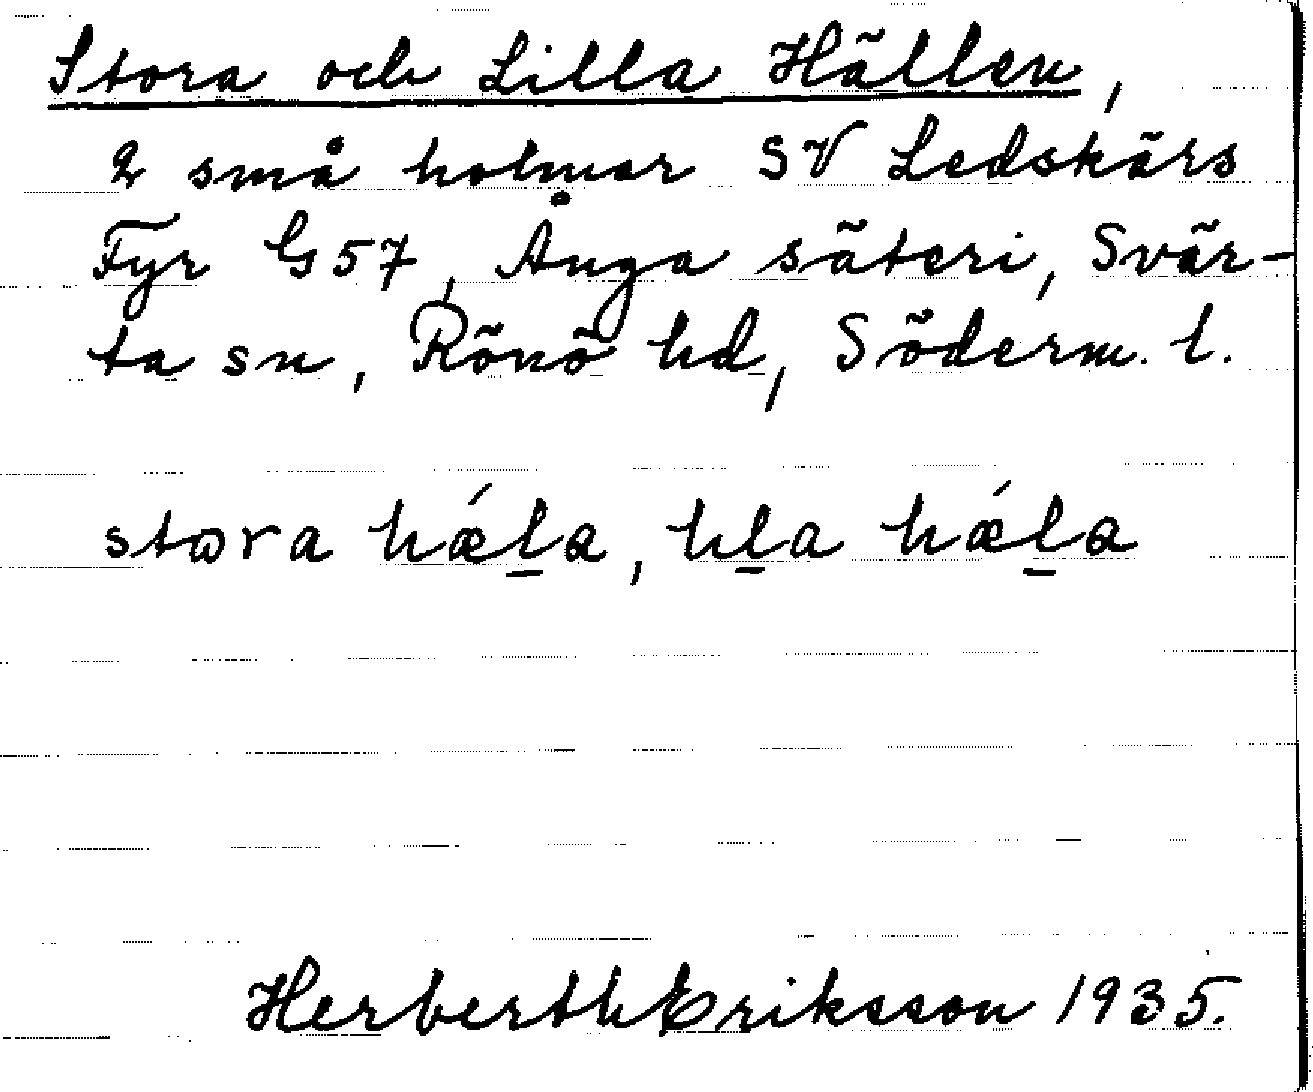 Stora och Lilla Hällen,
2 små holmar SV Ledskärs
Fyr G57, Ånga säteri, Svär-
ta sn, Rönö hd, Söderm. l.
stɷra hǽl̲a, l̲a hǽl̲a
Herberth Eriksson 1935.